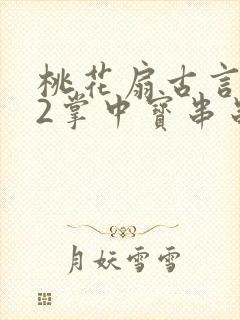 桃花扇古言
2掌中寶串
月妖雪雪